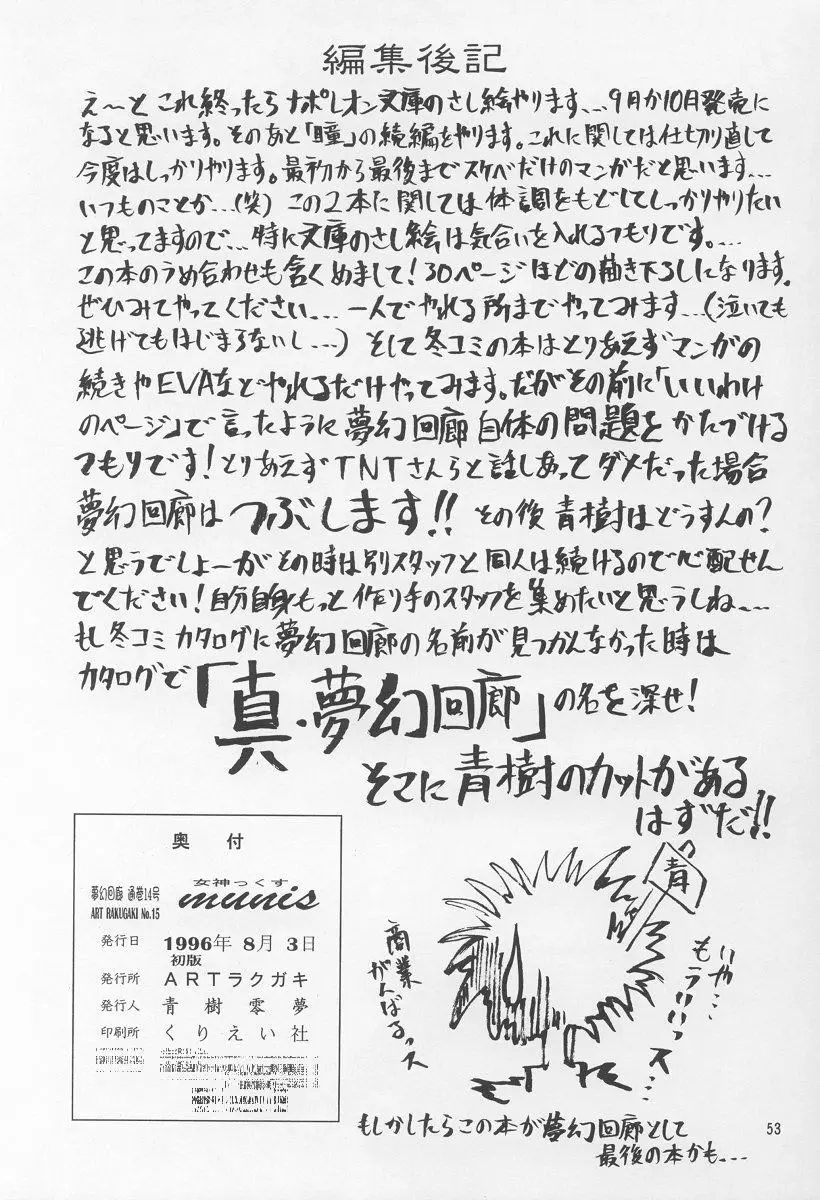 編集後記
え〜と これ終ったら ナポレオン文庫のさし絵やります...9月か10月発売に
なると思います。そのあと「瞳」の続編をやります。これに関しては仕切り直して
今度はしっかりやります。最初から最後までスケベだけのマンガだと思います...
いつものことか...(笑) この2本に関しては体調をもどしてしっかりやりたい
と思ってますので...特に文庫のさし絵は気合いを入れるつもりです。...
この本のうめ合わせも含くめまして!30ページほどの描き下ろしになります。
ぜひみてやってください...一人でやれる所までやってみます...(泣いても
逃げてもはじまらないし...) そして冬コミの本はとりあえずマンガの
続きやEVAなどやれるだけやってみます。だがその前に「いいわけ
のページ」で言ったように夢幻回廊自体の問題をかたづける
つもりです!とりあえずTNTさんらと話しあってダメだった場合
夢幻回廊はつぶします!! その後青樹はどうすんの?
と思うでしょーがその時は別スタッフと同人は続けるので心配せん
でください!自分自身もっと作り手のスタッフを集めたいと思うしね...
もし冬コミカタログに夢幻回廊の名前が見つかんなかった時は
カタログで「真・夢幻回廊」の名を深せ!
そこに青樹のカットがある
はずだ!!
奥付
夢幻回廊 通巻14号
ART RAKUGAKI No.15
女神っくす
munis
発行日 1996年 8月 3日
初版
発行所 ARTラクガキ
発行人 青樹零夢
印刷所 くりえい社
青
商業
がんばるっス
いや...
もういいっス...
もしかしたらこの本が夢幻回廊として
最後の本かも...
53